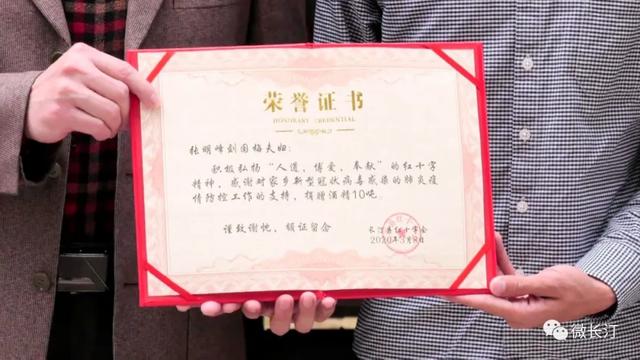 荣誉证书
HONORARY CREDENTIAL
张明峰剑国梅夫妇:
积极弘扬“人道,博爱,奉献”的红十字
精神,感谢对家乡新型冠状病毒感染的肺炎疫
情防控工作的支持,捐赠酒精10吨。
谨致谢忱,颁证留念
长汀县红十字会
2020年3月8日
微长汀